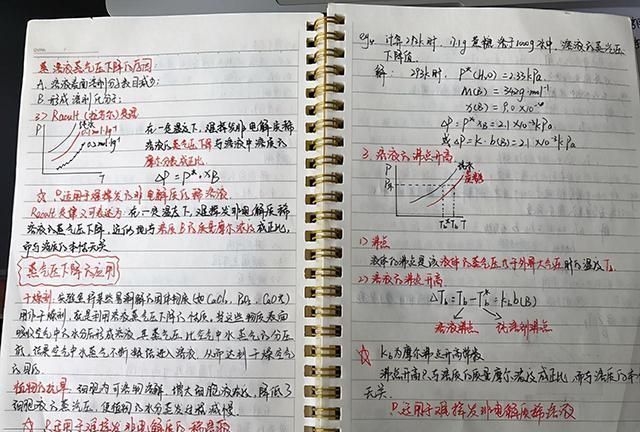 蒸 溶液蒸气压下降的原因:
A. 溶液表面溶剂分子数目减少;
B. 形成溶剂化分子;
3> Raoult (拉乌尔) 定律
P
纯水
0.1mol·kg⁻¹
0.2mol·kg⁻¹
T
在一定温度下, 难挥发非电解质稀
溶液的蒸气压下降与溶液中溶质的
摩尔分数成正比
ΔP = P*·xB
☆ 只适用于难挥发的非电解质稀溶液
Raoult定律又可表述为: 在一定温度下, 难挥发非电解质稀
溶液的蒸气压下降, 近似地与溶质B的质量摩尔浓度成正比,
而与溶质的本性无关
蒸气压下降的应用
干燥剂: 实验室许多易潮解的固体物质 (如CaCl₂, P₂O₅, CaO等)
用作干燥剂, 就是利用溶液蒸气压下降的性质, 当这些物质表面
吸收空气中水分后形成溶液, 其蒸气压比空气中水蒸气的分压
低, 结果空气中水蒸气不断地进入溶液, 从而达到干燥空气
的目的.
植物的抗旱: 细胞内可溶物溶解, 增大细胞液浓度, 降低了
细胞液的蒸汽压, 使植物的水分蒸发过程减慢.
☆ 只适用于难挥发非电解质的稀溶液
eg. 计算293K时, 17.1g蔗糖溶于1000g水中, 溶液的蒸气压
下降值.
解: 293K时, P*(H₂O) = 2.33kPa
M(B) = 342g·mol⁻¹
x(B) = 9.0×10⁻⁴
ΔP = P*xB = 2.1×10⁻³kPa
或ΔP = K·b(B) = 2.1×10⁻³kPa
3. 溶液的沸点升高
P
纯水
蔗糖
Tb* Tb T
1) 沸点
液体的沸点是该液体的蒸气压等于外界大气压时的温度Tb.
2) 溶液的沸点升高
ΔTb = Tb - Tb* = kb b(B)
溶液沸点 纯溶剂沸点
☆ kb为摩尔沸点升高常数
沸点升高只与溶质的质量摩尔浓度成正比, 而与溶质的本性
无关.
只适用于难挥发非电解质稀溶液